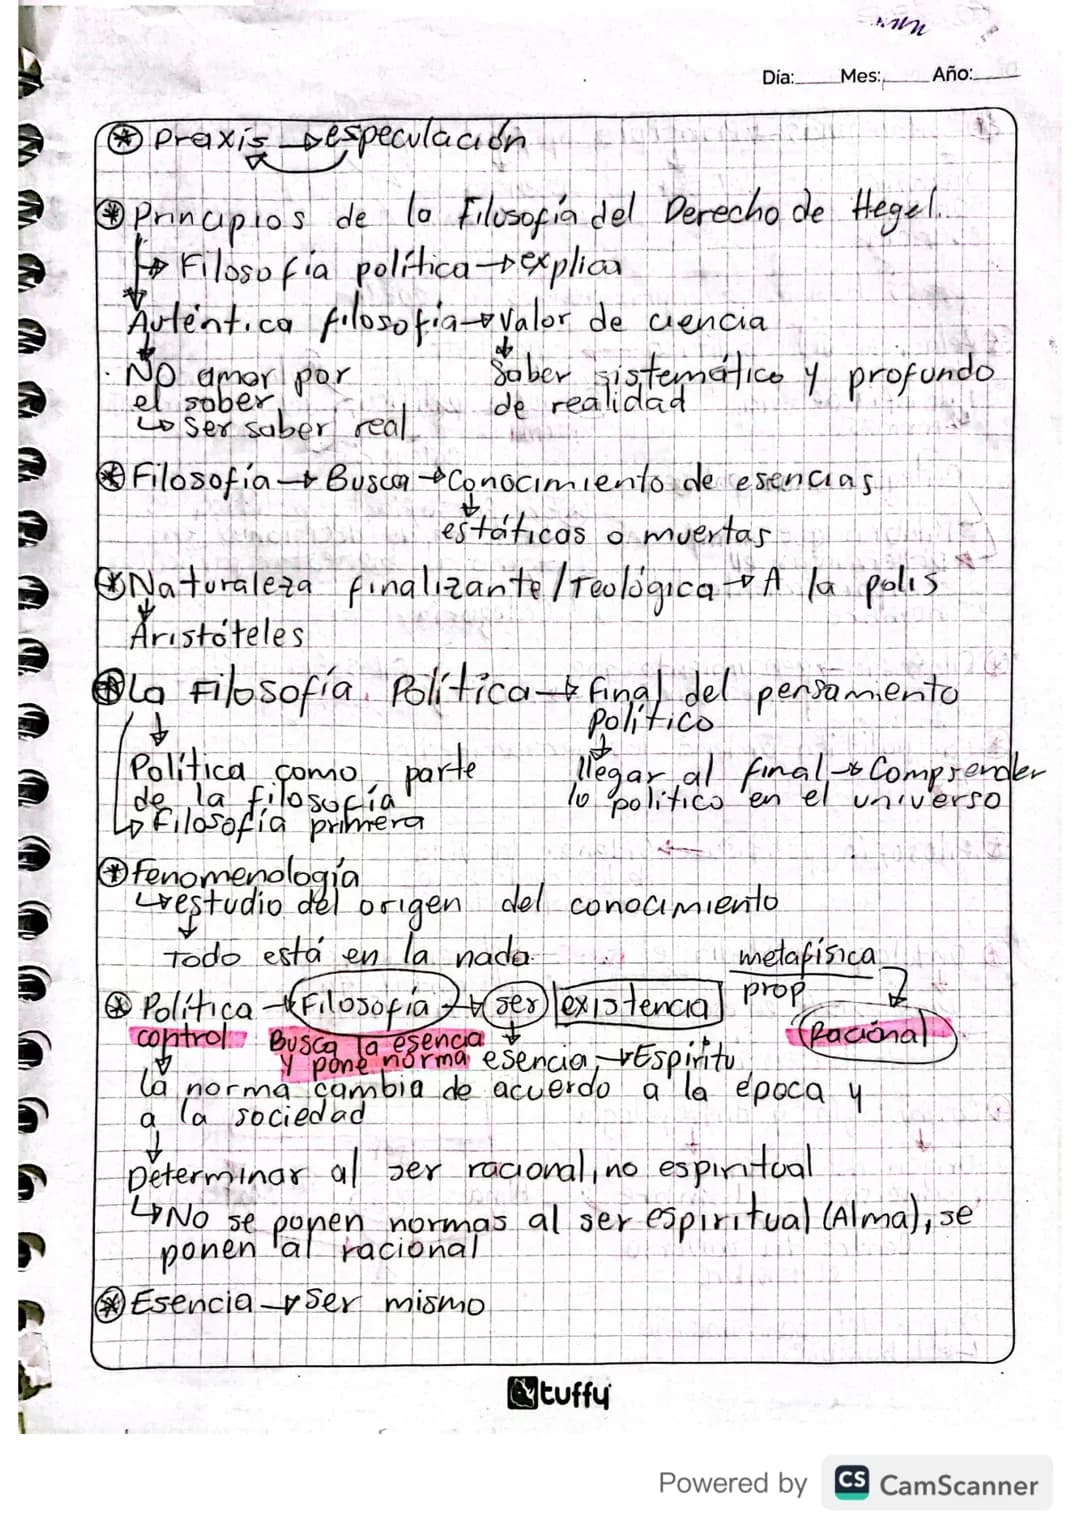 Día: Mes: Año:
⊛ Praxis → especulación
⊛ Principios de la Filosofía del Derecho de Hegel.
↳ Filosofía política → explica
Auténtica filosofía → Valor de ciencia
NO amor por
el saber
↳ Ser saber real
Saber sistemático y profundo
de realidad
⊛ Filosofía → Busca → Conocimiento de esencias
estáticas o muertas
⊛ Naturaleza finalizante/Teológica → A la polis
Aristóteles
⊛ La Filosofía Política → final del pensamiento
político
Política como parte
de la filosofía
↳ Filosofía primera
llegar al final → Comprender
lo político en el universo
⊛ Fenomenología
↳ estudio del origen del conocimiento
Todo está en la nada
metafísica
prop
⊛ Política → Filosofía → ser existencia
Racional
control Busca la esencia
y pone norma esencia → Espíritu
La norma cambia de acuerdo a la época y
a la sociedad
Determinar al ser racional, no espiritual
↳ No se ponen normas al ser espiritual (Alma), se
ponen al racional
⊛ Esencia → Ser mismo
tuffy
Powered by CS CamScanner